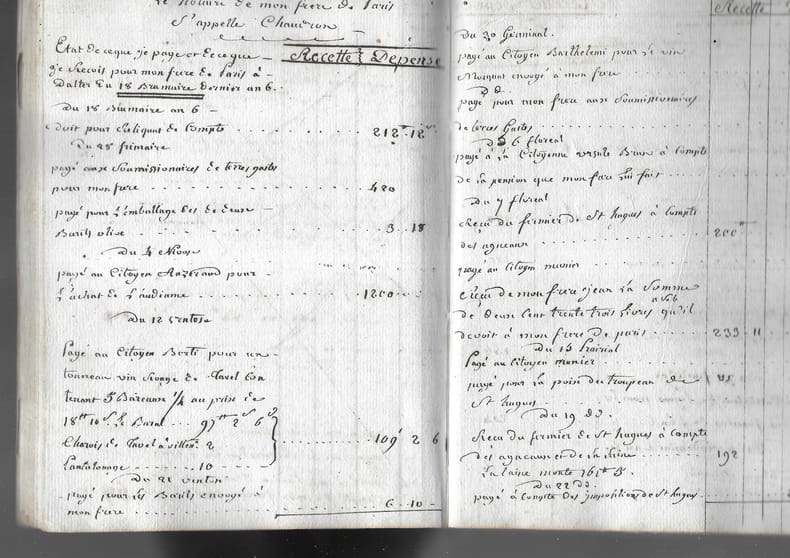 Le notaire de mon frere de Paris
S'appelle Chaudron
Etat de ce que je paye et de ce que
je Recois pour mon frere de Paris à
Datter du 18 Brumaire dernier an 6.
Recette Depense
Du 18 Brumaire an 6
doit pour Reliquat de Compte 212 12
Du 28 frimaire
payé aux Soumissionaires de terres gastes
pour mon frere 420
payé pour L'emballage des de deux
Barils olive 3 18
Du 4 Nivose
payé au Citoyen pour
L'achat de 1200
Du 12 ventose
Payé au Citoyen Berti pour un
tonneau vin Rouge de Tavel Con
tenant 5 Bareaux 1/4 au prix de
18tt 10s Le Baral 97tt 2s 6d
Charois de Tavel à ville 2
10
109 2 6
Du 21 ventose
payé pour les Barils envoyé à
mon frere 6 10
Recette
Du 30 Germinal
payé au Citoyen Barthelemi pour le vin
envoyé à mon frere
D.
payé pour mon frere aux Soumissionaires
de terres Gastes
D 6 floreal
payé à La Citoyenne ursule Brun à Compte
de La pension que mon frere Lui fait
Du 7 floreal
Reçu du fermier de St hugues à Compte
des agneaux 200
payé au Citoyen munier
Reçu de mon frere jean La Somme
de deux Cent trente trois Livres 11 sols qu'il
devoit à mon frere de paris 233 11
Du 15 prairial
Payé au Citoyen munier
payé pour la du troupeau de
St hugues
Du 19 do.
Reçu du fermier de St hugues à Compte
des agneaux et de la laine 192
La laine monte
Du 22 do.
payé à Compte des impositions de St hugues